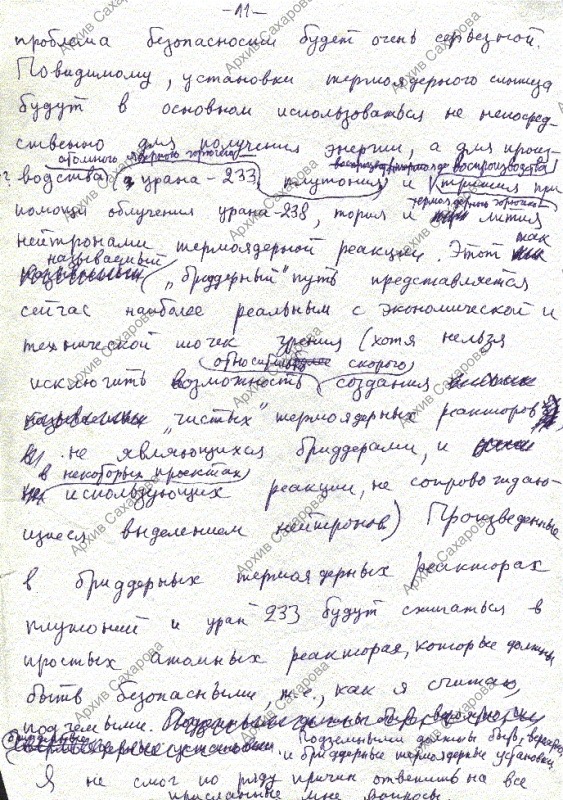 -11-
проблема безопасности будет очень серьезной.
Повидимому, установки термоядерного синтеза
будут в основном использоваться не непосред-
ственно для получения энергии, а для произ-
атомного ядерного горючего воспроизводства
водства (урана-233, плутония) и (трития при
термоядерного горючего
помощи облучения урана-238, тория и лития
нейтронами термоядерной реакции. Этот так
называемый „бридерный" путь представляется
сейчас наиболее реальным с экономической и
технической точек зрения (хотя нельзя
относительно скорого
исключить возможность создания
„чистых" термоядерных реакторов,
не являющихся бридерами, и
в некоторых проектах
использующих реакции, не сопровождаю-
щиеся выделением нейтронов) Произведенные
в бридерных термоядерных реакторах
плутоний и уран 233 будут сжигаться в
простых атомных реакторах, которые должны
быть безопасными т.е., как я считаю,
подземными.
Подземными должны быть, вероятно,
и бридерные термоядерные установки.
Я не смог по ряду причин ответить на все
присланные мне вопросы
Архив Сахарова